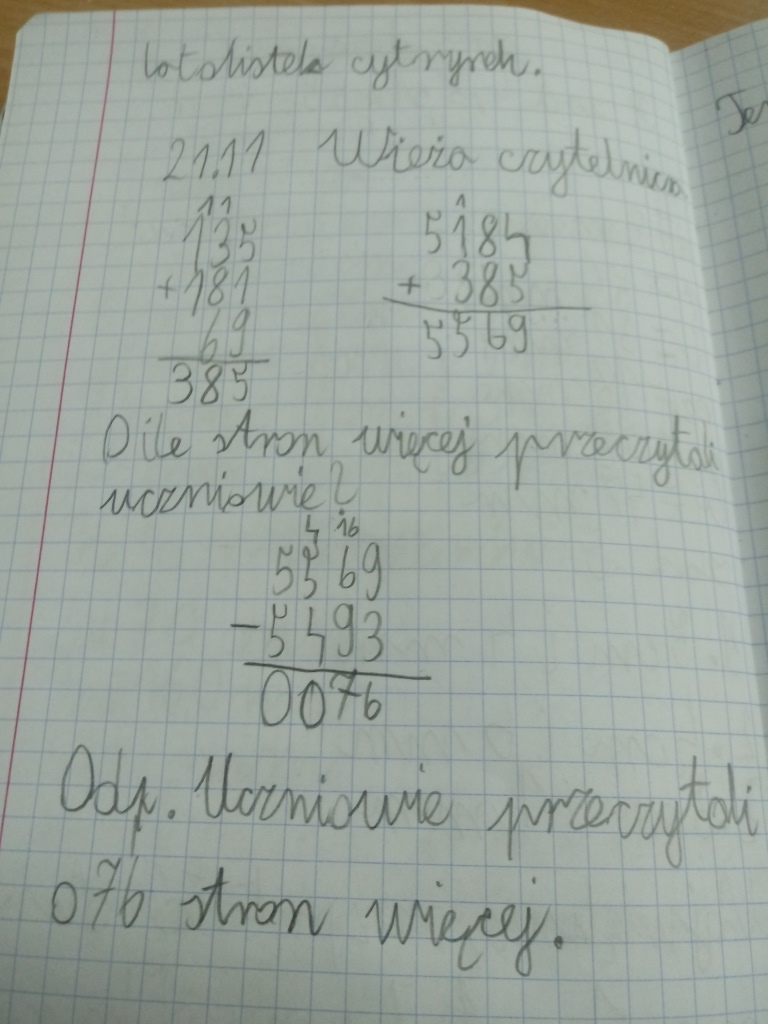 cytrynek.
21.11 Wieża czytelnicza
11
135
+181
69
385
1
5184
+ 385
5569
O ile stron więcej przeczytali
uczniowie?
4 16
5569
-5493
0076
Odp. Uczniowie przeczytali
076 stron więcej.